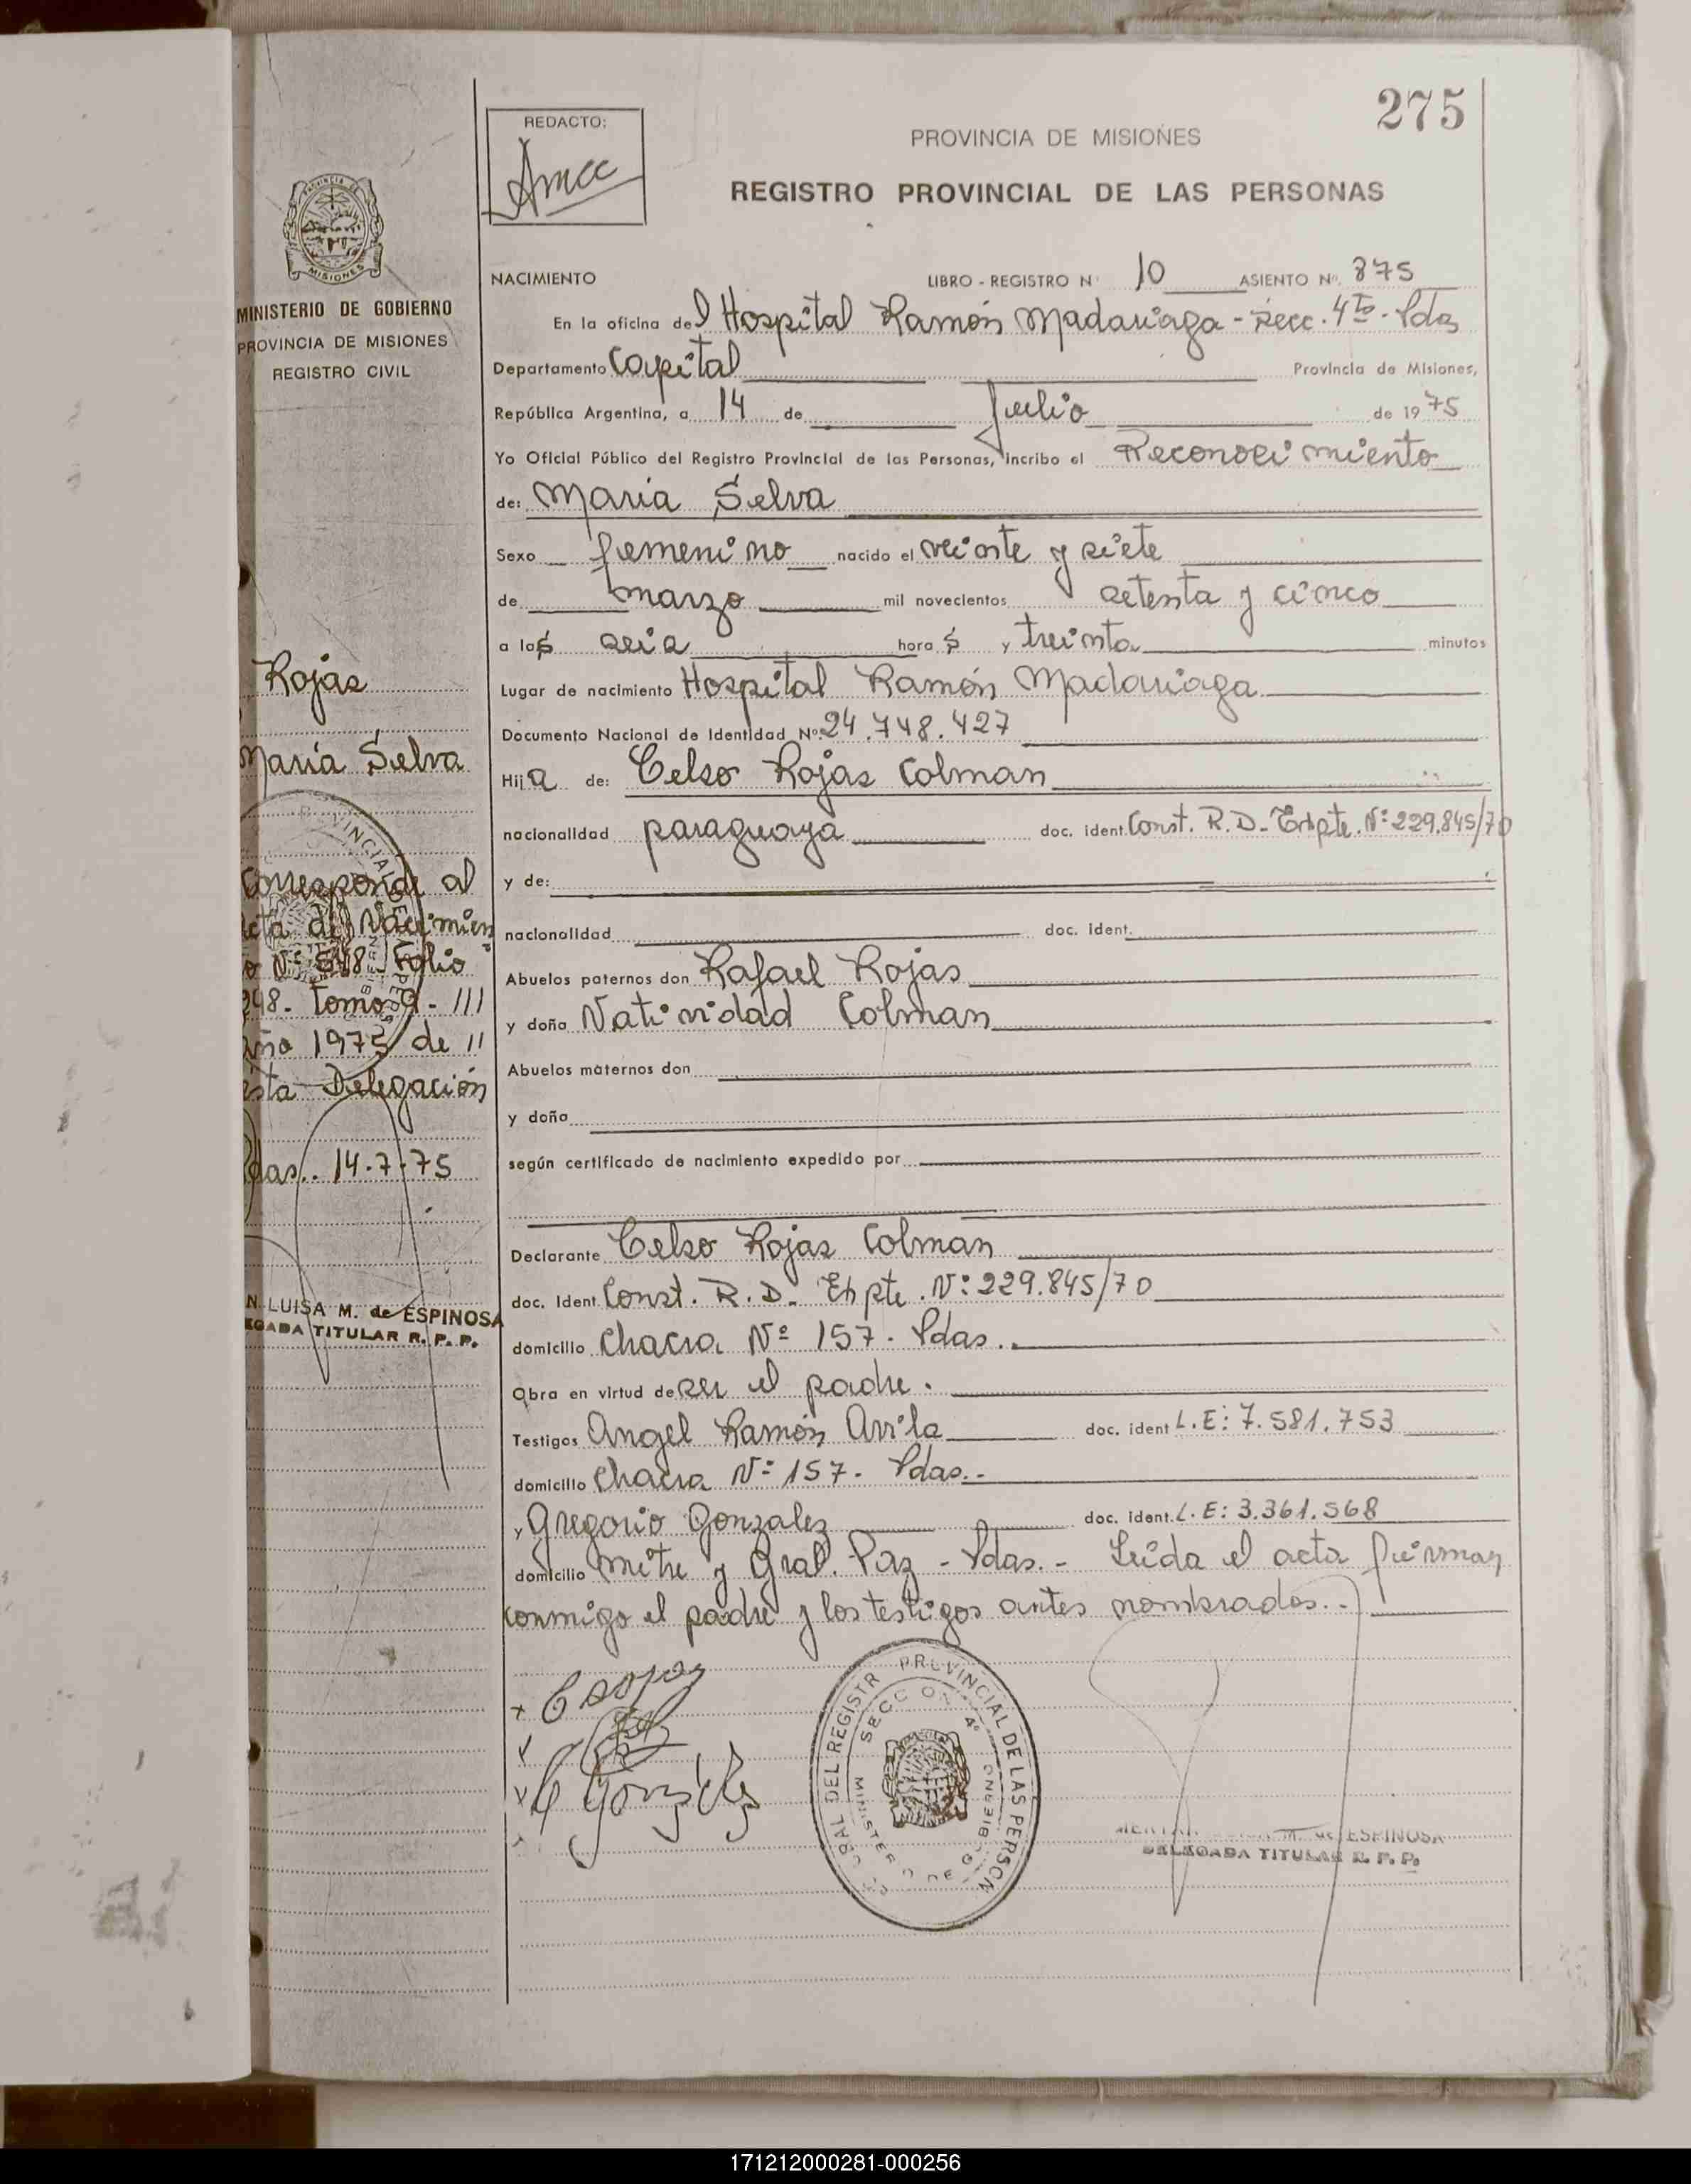 275
REDACTO:
PROVINCIA DE MISIONES
REGISTRO PROVINCIAL DE LAS PERSONAS
MISIONES
MINISTERIO DE GOBIERNO
PROVINCIA DE MISIONES
REGISTRO CIVIL
NACIMIENTO LIBRO - REGISTRO Nº 10 ASIENTO Nº 875
En la oficina del Hospital Ramón Madariaga - Secc. 4ta - Pdas
Departamento Capital Provincia de Misiones,
República Argentina, a 14 de Julio de 1975
Yo Oficial Público del Registro Provincial de las Personas, incribo el Reconocimiento
de: María Selva
Sexo femenino nacido el veinte y siete
de marzo mil novecientos setenta y cinco
a las seis horas y treinta minutos
Lugar de nacimiento Hospital Ramón Madariaga
Documento Nacional de Identidad Nº 24.748.427
Hija de: Celso Rojas Colman
nacionalidad paraguaya doc. ident. Const. R.D. - Expte. Nº 229.845/70
y de:
nacionalidad doc. ident.
Abuelos paternos don Rafael Rojas
y doña Natividad Colman
Abuelos maternos don
y doña
según certificado de nacimiento expedido por
Declarante Celso Rojas Colman
doc. Ident. Const. R.D. - Expte. Nº 229.845/70
domicilio Chacra Nº 157. Pdas.
Obra en virtud de ser el padre.
Testigos Angel Ramón Avila doc. ident L.E: 7.581.753
domicilio Chacra Nº 157. Pdas..-
y Gregorio Gonzalez doc. ident. L.E: 3.361.568
domicilio Mitre y Gral. Paz - Pdas. - Leída el acta firman
conmigo el padre y los testigos antes nombrados..-
Rojas
María Selva
Corresponde al
acta de Nacimien
to Nº 548 - Folio
248. Tomo 9 - III
año 1975 de //
esta Delegación
Pdas.. 14.7.75
N. LUISA M. de ESPINOSA
EGADA TITULAR R. P. P.
x C Rojas
x
x G Gonzalez
DEL REGISTR PROVINCIAL DE LAS PERSON
SECCION 4ª
MINISTERIO DE GOBIERNO
M. de ESPINOSA
DELEGADA TITULAR R. P. P.
171212000281-000256